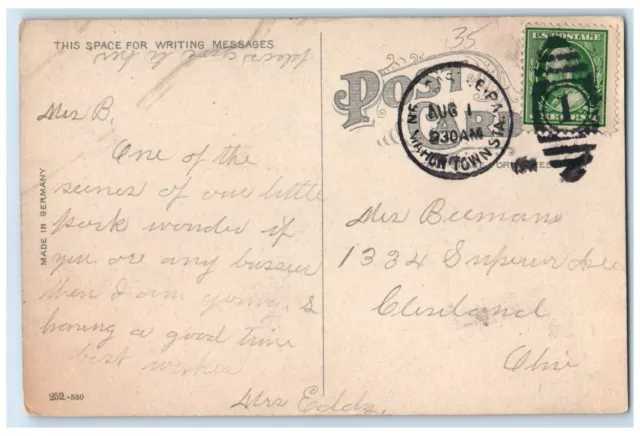 THIS SPACE FOR WRITING MESSAGES
Mrs B.
One of the
scenes of our little
park wonder if
you are any busier
then I am going &
having a good time
best wishes
Mrs Edds.
MADE IN GERMANY
252.-530
35
POST
CARD
AUG 1
930AM
U.S. POSTAGE
ONE CENT
Mrs Beemans
1334 Superior Ave
Cleveland
Ohio